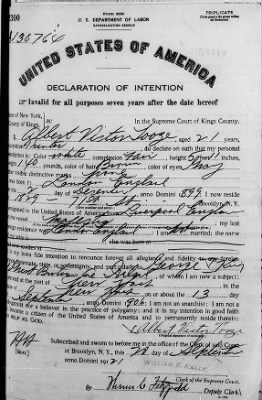 2300
U. S. DEPARTMENT OF LABOR
TRIPLICATE
No. 136764
UNITED STATES OF AMERICA
DECLARATION OF INTENTION
Invalid for all purposes seven years after the date hereof
of New York,
In the Supreme Court of Kings County.
of Kings
I, Albert Victor Tooze, aged 21 years,
occupation Printer, do declare on oath that my personal
description is: Color white, complexion Fair, height 5 feet 11 inches,
weight 140 pounds, color of hair Brown, color of eyes Gray
other visible distinctive marks None
London England
day of December, anno Domini 1899; I now reside
at 1829 - 71st St Brooklyn, N. Y.
to the United States of America from Liverpool England
; my last
foreign residence was England
; I am married; the name
she was born at
It is my bona fide intention to renounce forever all allegiance and fidelity to any foreign
prince, potentate, state, or sovereignty, and particularly to George V King
of Great Britain and Ireland, of whom I am now a subject;
I arrived at the port of New York, in the
State of New York, on or about the 13 day
of September, anno Domini 1906; I am not an anarchist; I am not a
polygamist nor a believer in the practice of polygamy; and it is my intention in good faith
to become a citizen of the United States of America and to permanently reside therein:
SO HELP ME GOD.
Albert Victor Tooze
Subscribed and sworn to before me in the office of the Clerk of said Court
at Brooklyn, N. Y., this 22 day of September
anno Domini 1921
WILLIAM E. KELLY
Clerk of the Supreme Court.
Deputy Clerk.